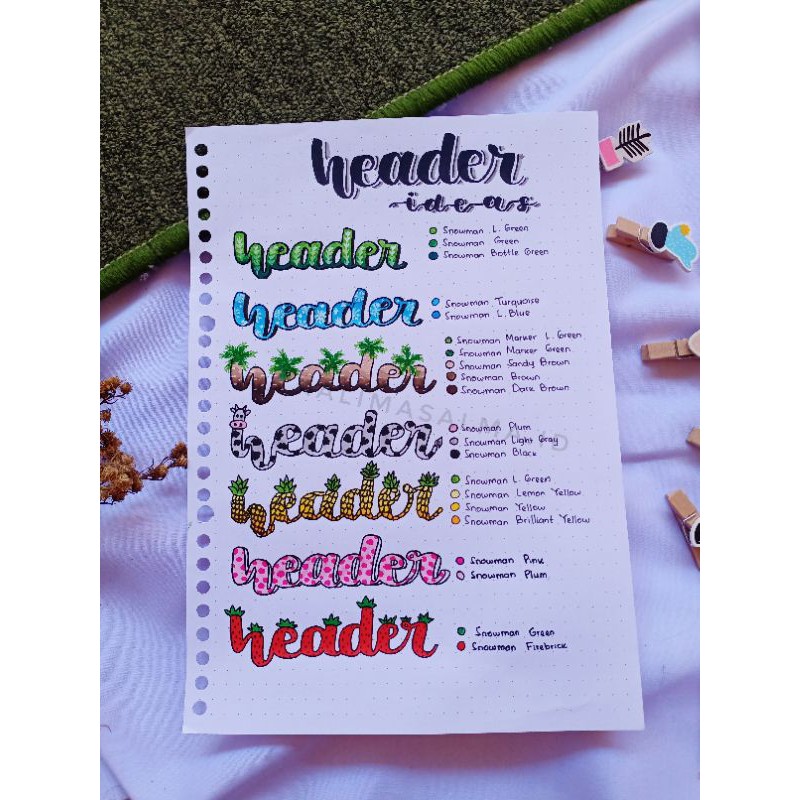 header
ideas
header
Snowman L. Green
Snowman Green
Snowman Bottle Green
header
Snowman Turquoise
Snowman L. Blue
header
Snowman Marker L. Green
Snowman Marker Green
Snowman Sandy Brown
Snowman Brown
Snowman Dark Brown
header
Snowman Plum
Snowman Light Gray
Snowman Black
header
Snowman L. Green
Snowman Lemon Yellow
Snowman Yellow
Snowman Brilliant Yellow
header
Snowman Pink
Snowman Plum
header
Snowman Green
Snowman Firebrick